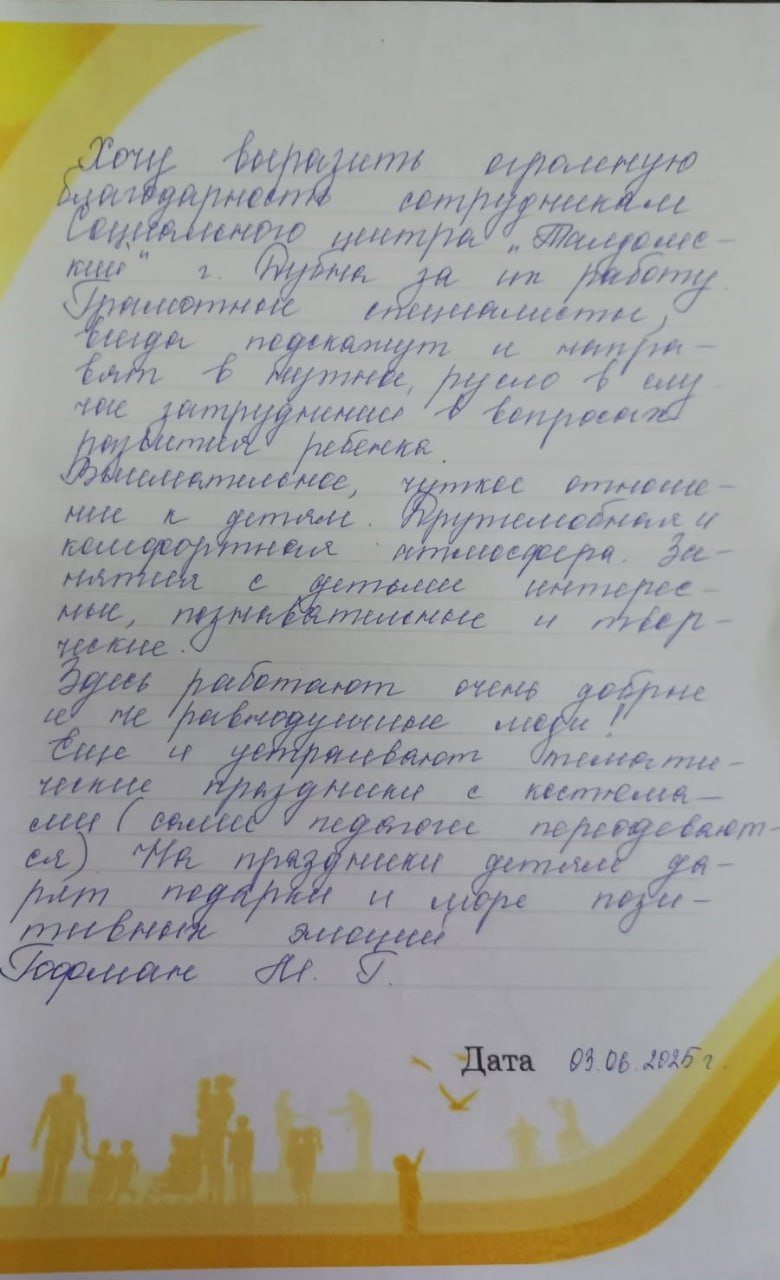 Хочу выразить огромную
благодарность сотрудникам
Социального центра „Талдомс-
кий" г. Дубна за их работу.
Грамотные специалисты,
всегда подскажут и напра-
вят в нужное русло в слу-
чае затруднений в вопросах
развития ребенка.
Внимательное, чуткое отноше-
ние к детям. Дружелюбная и
комфортная атмосфера. За-
нятия с детьми интерес-
ные, познавательные и твор-
ческие.
Здесь работают очень добрые
и не равнодушные люди!
Еще и устраивают темати-
ческие праздники с костюма-
ми (сами педагоги переодевают-
ся) На праздники детям да-
рят подарки и море пози-
тивных эмоций
Гофман Н. Г.
Дата 03.06.2025 г.